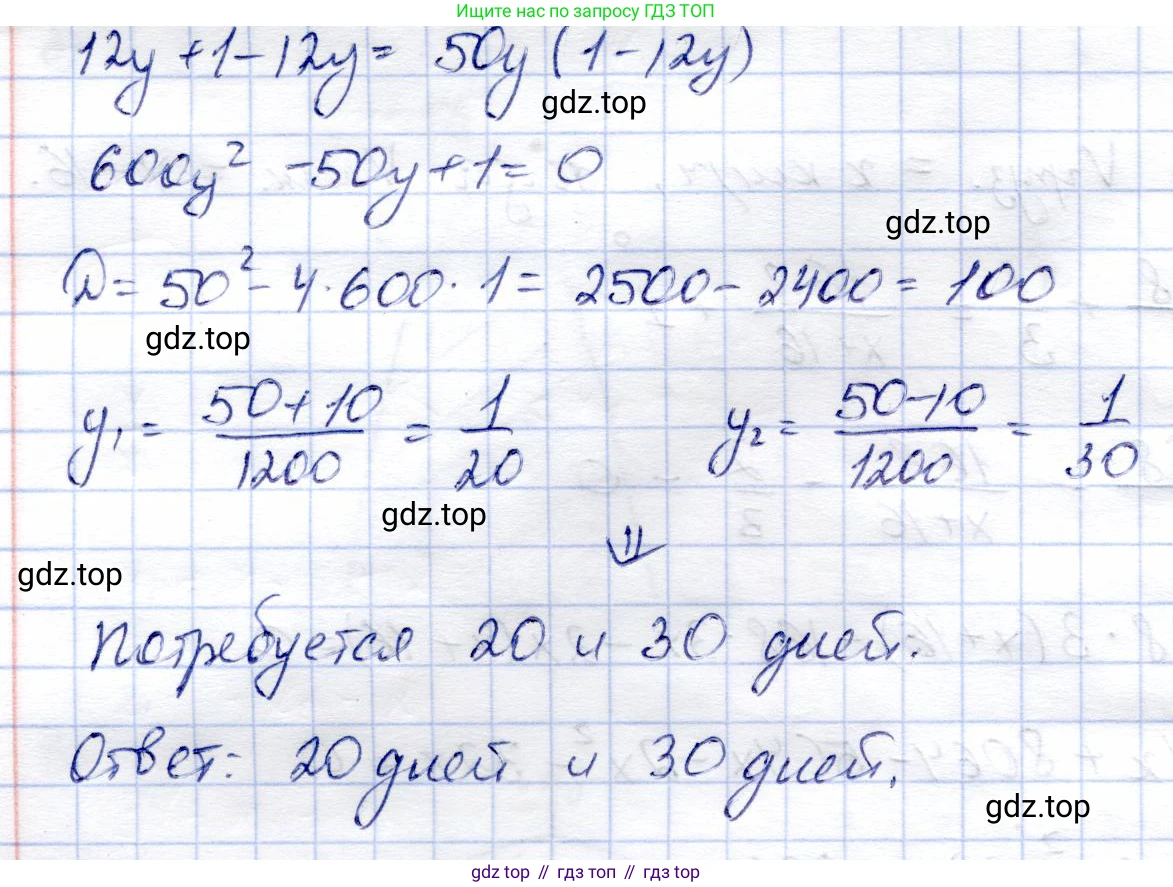 Ищите нас по запросу ГДЗ ТОП
12y + 1 - 12y = 50y (1 - 12y)
gdz.top
600y² - 50y + 1 = 0
gdz.top
D = 50² - 4 · 600 · 1 = 2500 - 2400 = 100
gdz.top
y₁ = (50 + 10)/1200 = 1/20 y₂ = (50 - 10)/1200 = 1/30
gdz.top
⇓
gdz.top
Потребуется 20 и 30 дней.
Ответ: 20 дней и 30 дней.
gdz.top
gdz top // гдз топ // gdz top